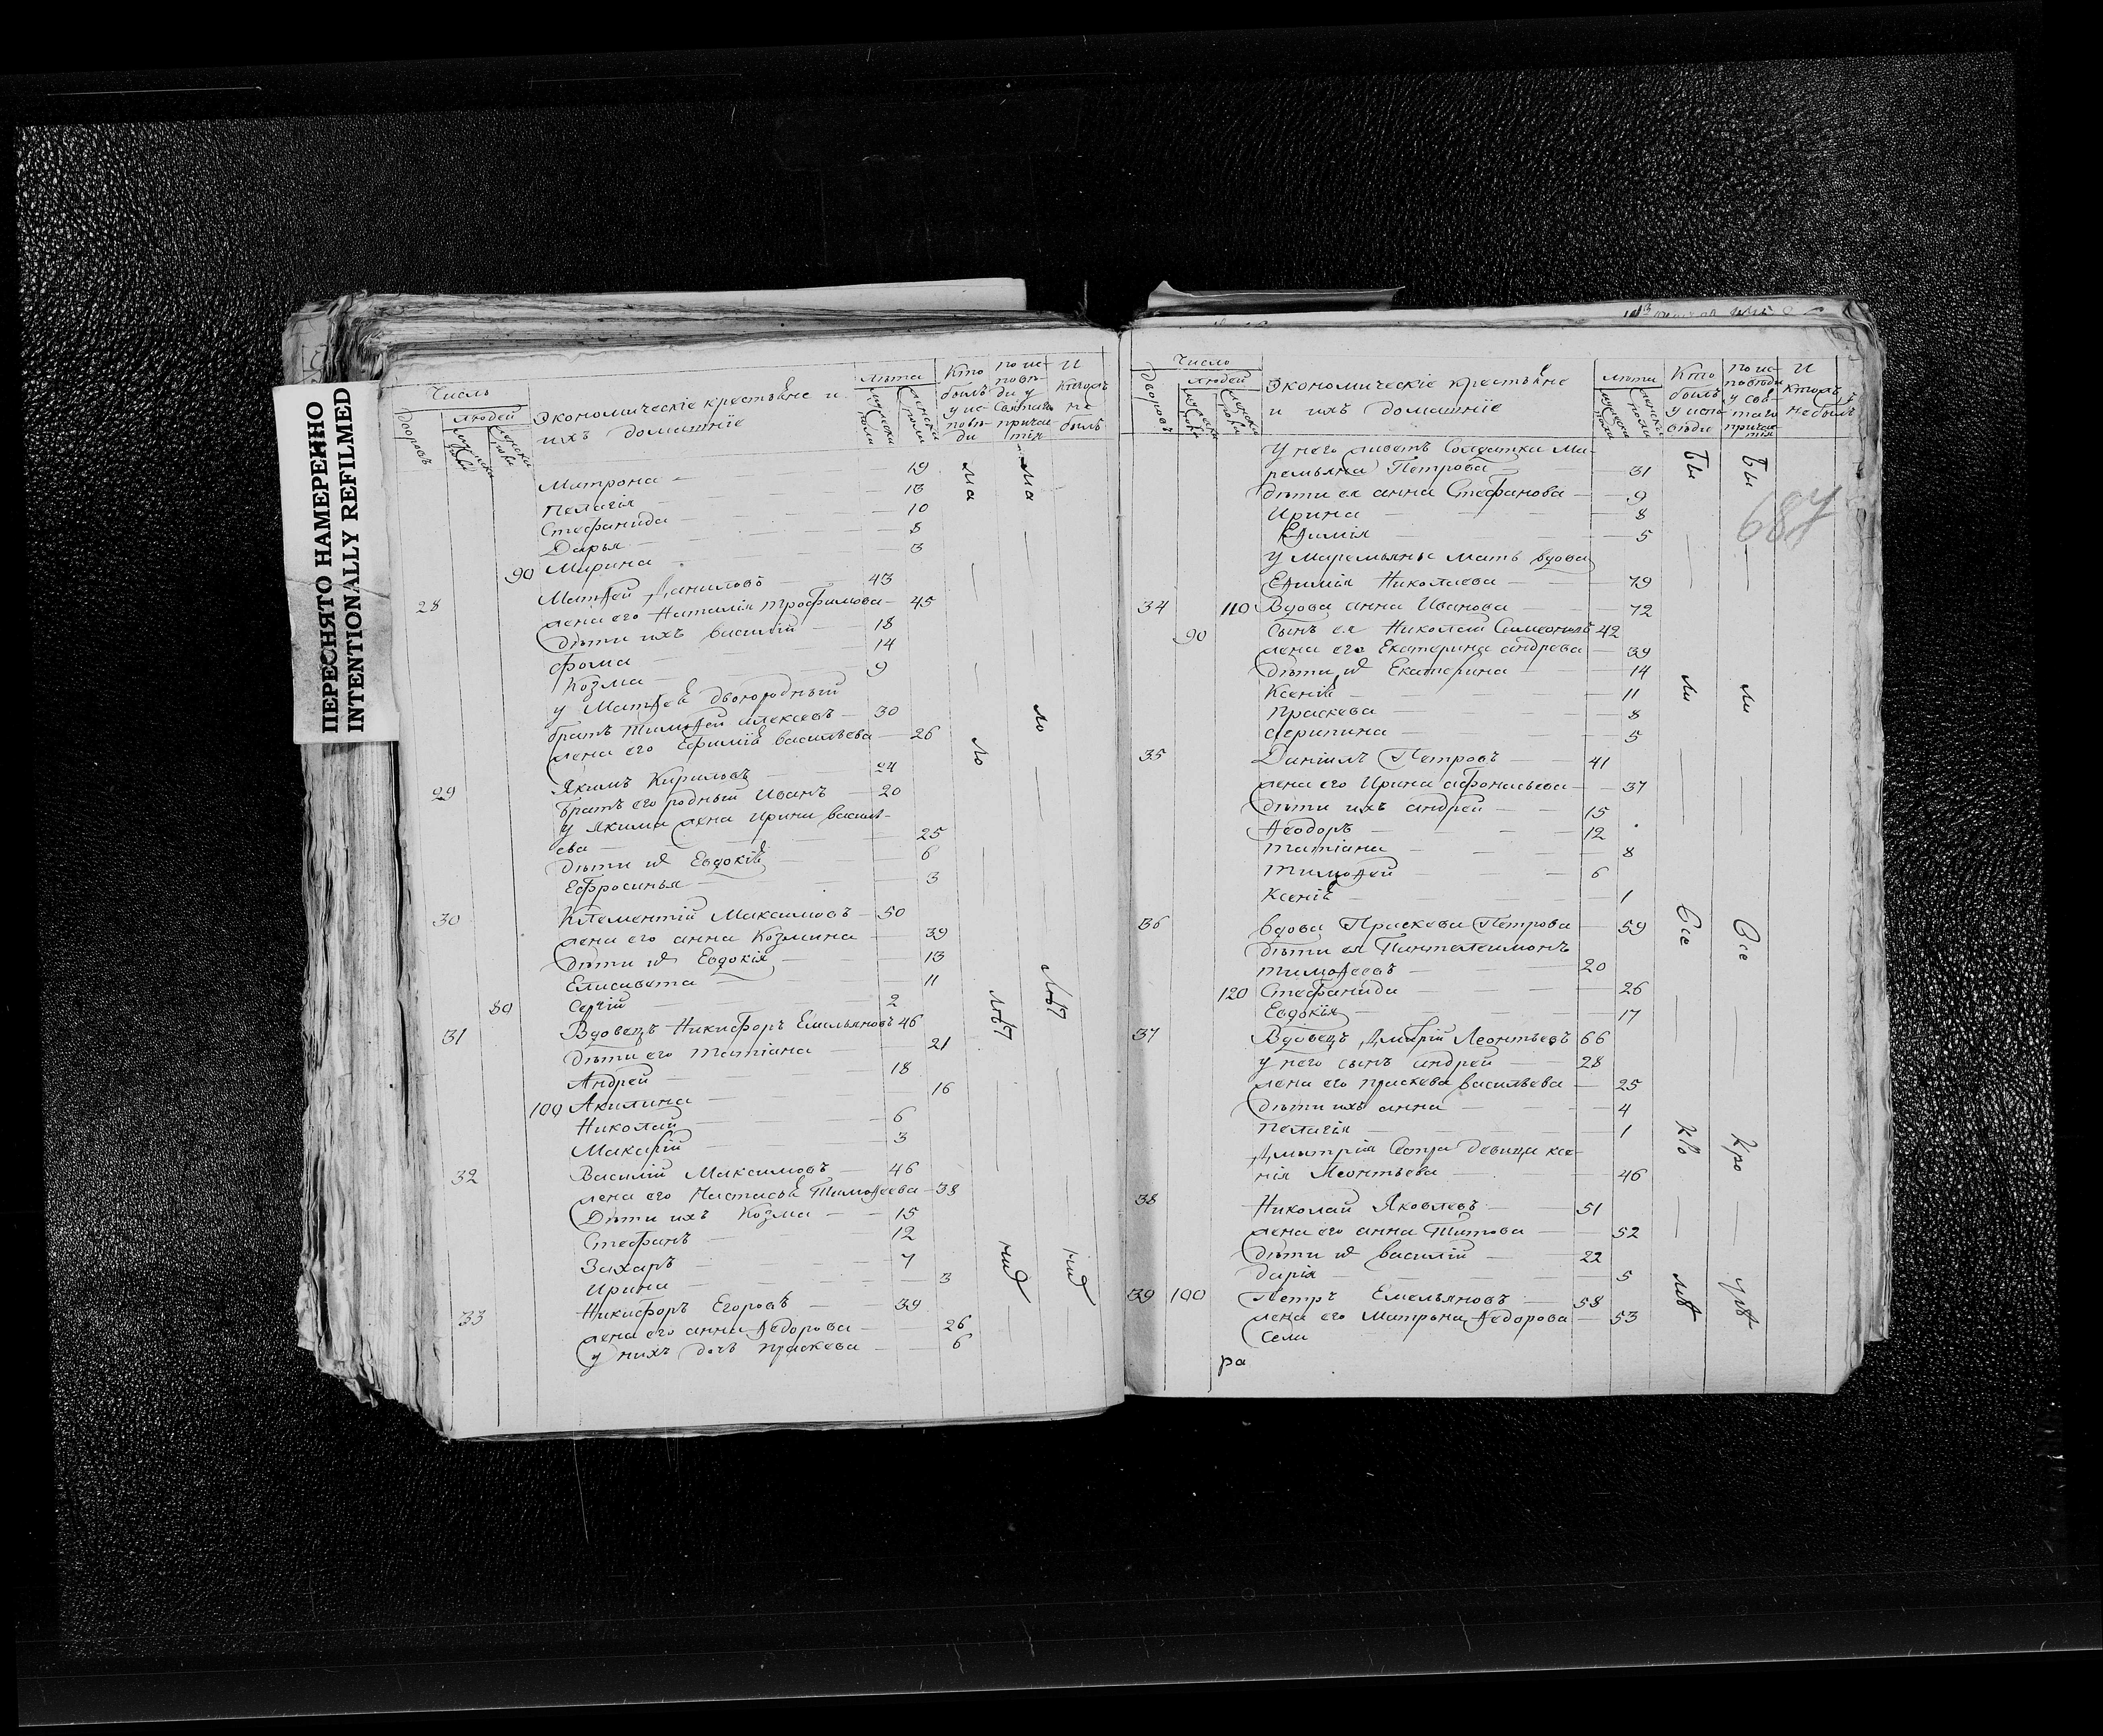 ПЕРЕСНЯТО НАМЕРЕННО
INTENTIONALLY REFILMED
Число
Дворовъ
людей
Экономическіе крестьяне и
ихъ домашніе
лѣта
Кто былъ у исповѣди
по исповѣди у святаго причастія
И кто не былъ
Матрона — 19
Пелагія — 13
Стефанида — 10
Дарья — 8
90 Марина — 3
28 Матѳей Даниловъ — 43
жена его Наталія Трофимова — 45
дѣти ихъ Василій — 18
Фома — 14
Козма — 9
у Матѳея двоюродный
братъ Тимоѳей Алексевъ — 30
жена его Ефимія Васильева — 26
29 Якимъ Кириловъ — 24
братъ его родный Иванъ — 20
у Якима жена Ирина Василь-
ева — 25
дѣти их Евдокія — 6
Ефросинья — 3
30 Клементій Максимовъ — 50
жена его Анна Козмина — 39
дѣти их Евдокія — 13
Елисавета — 11
80 Сергій — 2
31 Вдовецъ Никифоръ Емельяновъ 46
дѣти его Татіана — 21
Андрей — 18
100 Акилина — 16
Николай — 6
Макарій — 3
32 Василій Максимовъ — 46
жена его Настасья Тимоѳеева — 38
Дѣти ихъ Козма — 15
Стефанъ — 12
Захаръ — 7
Ирина — 3
33 Никифоръ Егоровъ — 39
жена его Анна Ѳедорова — 26
у нихъ дочь Праскева — 6
Число
Дворовъ
людей
Экономическіе крестьяне
и ихъ домашніе
лѣта
Кто былъ у исповѣди
по исповѣди у святаго причастія
И кто не былъ
687
У него живетъ Солдатка Ма-
ремьяна Петрова — 31
дѣти ея Анна Стефанова — 9
Ирина — 8
Еѵимія — 5
У Маремьяны мать вдова
Еѵимія Николаева — 79
34 110 Вдова Анна Иванова — 72
90 Сынъ ея Николай 42
жена его Екатерина Андрева — 39
Дѣти их Екатерина — 14
Ксенія — 11
Праскева — 8
Агрипина — 5
35 Даніилъ Петровъ — 41
жена его Ирина Афонасьева — 37
дѣти ихъ Андрей — 15
Ѳеодоръ — 12
Татіана — 8
Тимоѳей — 6
Ксенія — 1
36 вдова Праскева Петрова — 59
дѣти ея Пантелеимонъ
Тимоѳеевъ — 20
120 Стефанида — 26
Евдокія — 17
37 Вдовецъ Дмитрій Леонтьевъ 66
у него сынъ Андрей — 28
жена его Праскева Васильева — 25
дѣти ихъ Анна — 4
Пелагія — 1
Дмитрія Сестра девица Ксе-
нія Леонтьева — 46
38 Николай Яковлевъ — 51
жена его Анна Титова — 52
дѣти их Василій — 22
Дарія — 5
39 100 Петръ Емельяновъ — 58
жена его Матрона Ѳедорова — 53
Села
ра